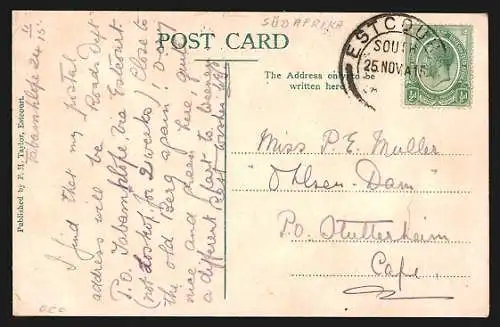 SÜDAFRIKA
POST CARD
ESTCOURT
SOUTH
25 NOV
½d
The Address only to be
written here.
Published by P. H. Taylor, Estcourt.
Tabamhlope 24.
I find that my postal
address will be "Roads Dept
P.O. Tabamhlope, via Estcourt
(not Loskop for 2 weeks) Close to
the old Berg again! V.
nice and green here, quite
a different part to
Best wishes
Miss P. E. Muller
"Ohlsen-Dam"
P.O. Stutterheim
Cape